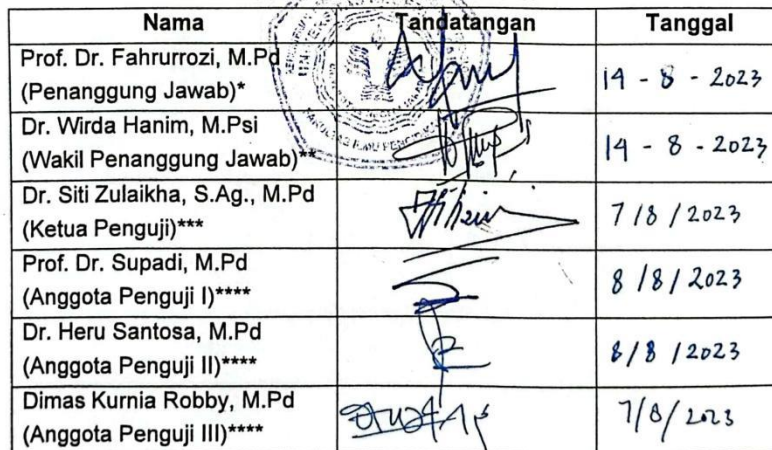 Nama Tandatangan Tanggal
Prof. Dr. Fahrurrozi, M.Pd
(Penanggung Jawab)* 14 - 8 - 2023
Dr. Wirda Hanim, M.Psi
(Wakil Penanggung Jawab)** 14 - 8 - 2023
Dr. Siti Zulaikha, S.Ag., M.Pd
(Ketua Penguji)*** 7/8/2023
Prof. Dr. Supadi, M.Pd
(Anggota Penguji I)**** 8/8/2023
Dr. Heru Santosa, M.Pd
(Anggota Penguji II)**** 8/8/2023
Dimas Kurnia Robby, M.Pd
(Anggota Penguji III)**** 7/8/2023